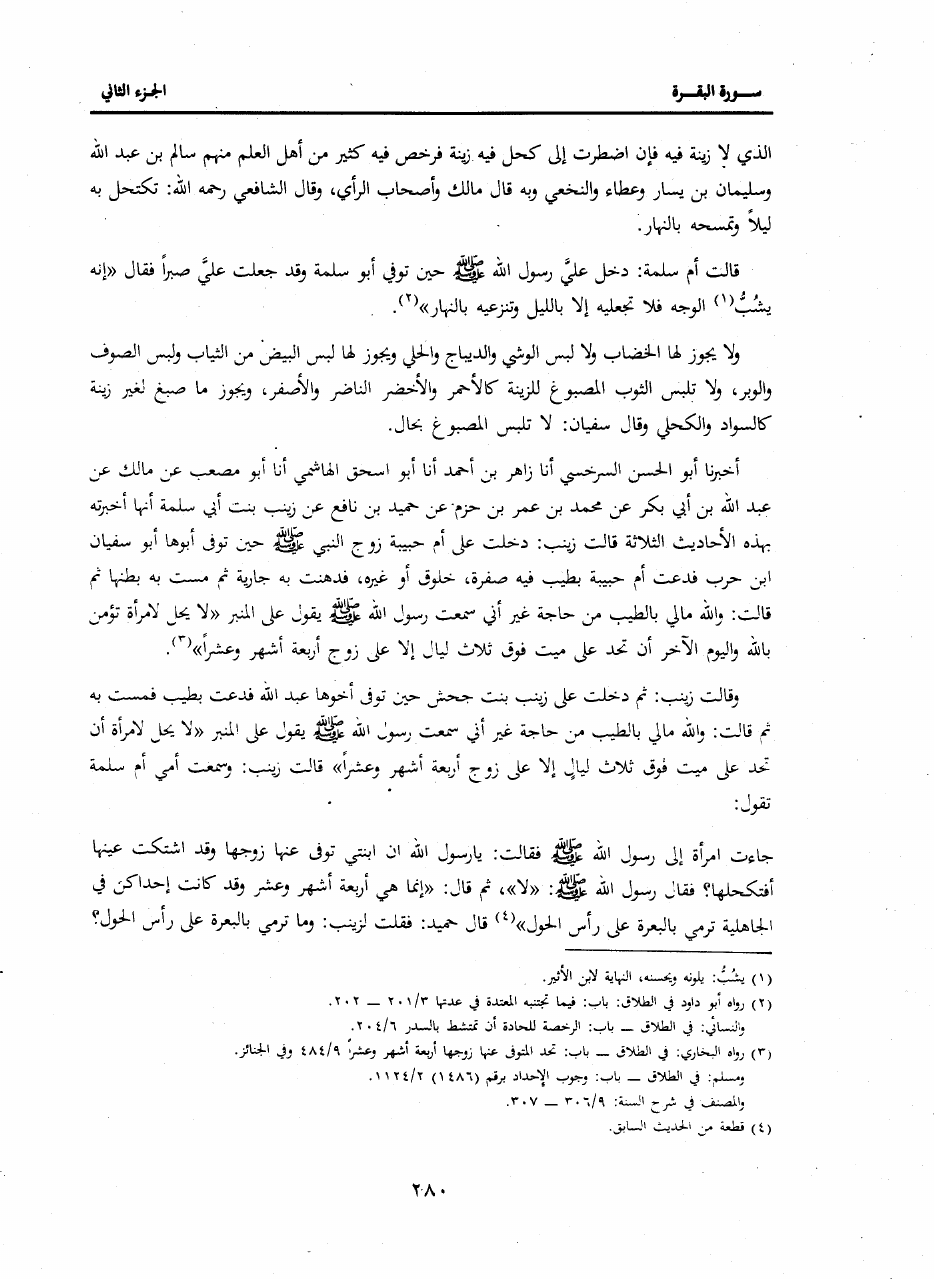 سـورة البقـرة
الجزء الثاني
الذي لا زينة فيه فإن اضطرت إلى كحل فيه زينة فرخص فيه كثير من أهل العلم منهم سالم بن عبد الله
وسليمان بن يسار وعطاء والنخعي وبه قال مالك وأصحاب الرأي، وقال الشافعي رحمه الله: تكتحل به
ليلاً وتمسحه بالنهار.
قالت أم سلمة: دخل عليَّ رسول الله ﷺ حين توفي أبو سلمة وقد جعلت عليَّ صبراً فقال «إنه
يشُبُّ(١) الوجه فلا تجعليه إلا بالليل وتنزعيه بالنهار»(٢).
ولا يجوز لها الخضاب ولا لبس الوشي والديباج والحلي ويجوز لها لبس البيض من الثياب ولبس الصوف
والوبر، ولا تلبس الثوب المصبوغ للزينة كالأحمر والأخضر الناضر والأصفر، ويجوز ما صبغ لغير زينة
كالسواد والكحلي وقال سفيان: لا تلبس المصبوغ بحال.
أخبرنا أبو الحسن السرخسي أنا زاهر بن أحمد أنا أبو اسحق الهاشمي أنا أبو مصعب عن مالك عن
عبد الله بن أبي بكر عن محمد بن عمر بن حزم عن حميد بن نافع عن زينب بنت أبي سلمة أنها أخبرته
بهذه الأحاديث الثلاثة قالت زينب: دخلت على أم حبيبة زوج النبي ﷺ حين توفى أبوها أبو سفيان
ابن حرب فدعت أم حبيبة بطيب فيه صفرة، خلوق أو غيره، فدهنت به جارية ثم مست به بطنها ثم
قالت: والله مالي بالطيب من حاجة غير أني سمعت رسول الله ﷺ يقول على المنبر «لا يحل لامرأة تؤمن
بالله واليوم الآخر أن تحد على ميت فوق ثلاث ليال إلا على زوج أربعة أشهر وعشراً»(٣).
وقالت زينب: ثم دخلت على زينب بنت جحش حين توفى أخوها عبد الله فدعت بطيب فمست به
ثم قالت: والله مالي بالطيب من حاجة غير أني سمعت رسول الله ﷺ يقول على المنبر «لا يحل لامرأة أن
تحد على ميت فوق ثلاث ليالٍ إلا على زوج أربعة أشهر وعشراً» قالت زينب: وسمعت أمي أم سلمة
تقول:
جاءت امرأة إلى رسول الله ﷺ فقالت: يارسول الله ان ابنتي توفى عنها زوجها وقد اشتكت عينها
أفتكحلها؟ فقال رسول الله ﷺ: «لا»، ثم قال: «إنما هي أربعة أشهر وعشر وقد كانت إحداكن في
الجاهلية ترمي بالبعرة على رأس الحول»(٤) قال حميد: فقلت لزينب: وما ترمي بالبعرة على رأس الحول؟
(١) يشُبُّ: يلونه ويحسنه، النهاية لابن الأثير.
(٢) رواه أبو داود في الطلاق: باب: فيما تجتنبه المعتدة في عدتها ٢٠١/٣ — ٢٠٢.
والنسائي: في الطلاق — باب: الرخصة للحادة أن تمتشط بالسدر ٢٠٤/٦.
(٣) رواه البخاري: في الطلاق — باب: تحد المتوفى عنها زوجها أربعة أشهر وعشراً ٤٨٤/٩ وفي الجنائز.
ومسلم: في الطلاق — باب: وجوب الإحداد برقم (١٤٨٦) ١١٢٤/٢.
والمصنف في شرح السنة: ٣٠٦/٩ — ٣٠٧.
(٤) قطعة من الحديث السابق.
٢٨٠